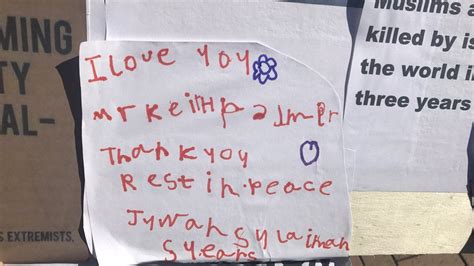 MING
TY
AL-
S EXTREMISTS.
I love you
mr keiTH palmer
Thank you
Rest in.peace
Jywan sylaiman
5 years
Muslims a
killed by is
the world in
three years